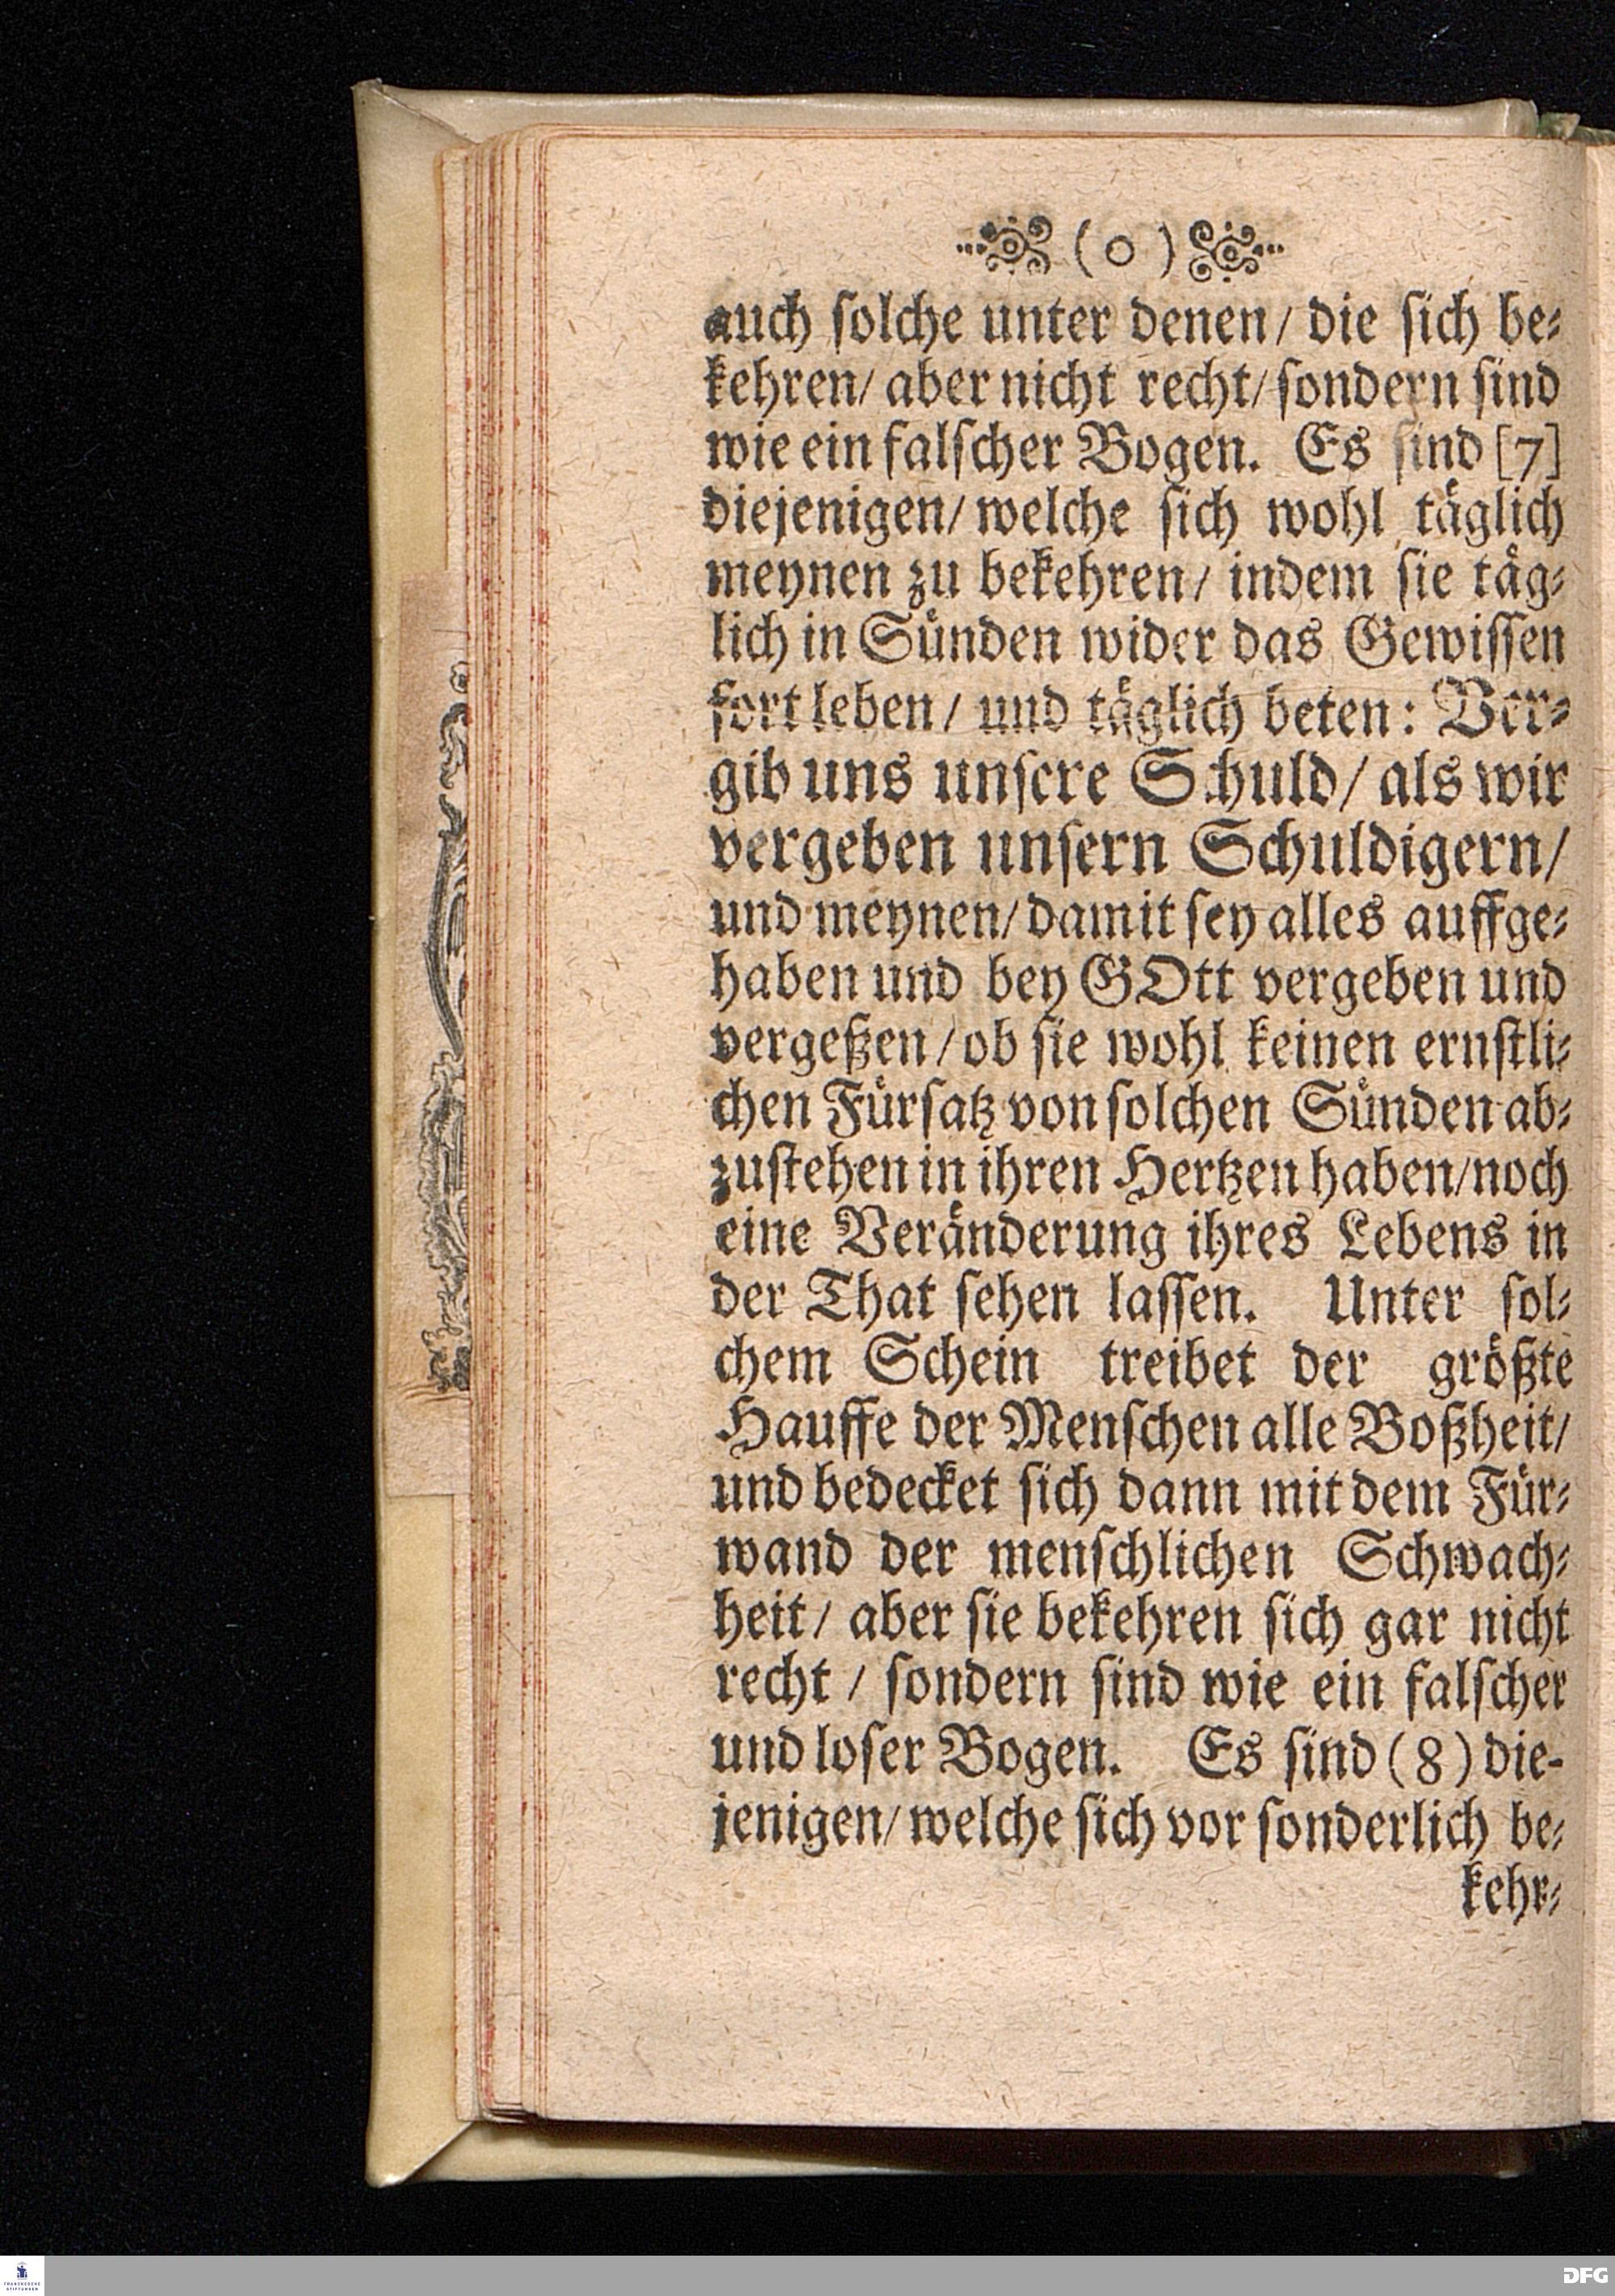 ( o )
auch ſolche unter denen/ die ſich be⸗
kehren/ aber nicht recht/ ſondern ſind
wie ein falſcher Bogen. Es ſind [7]
diejenigen/ welche ſich wohl täglich
meynen zu bekehren/ indem ſie täg⸗
lich in Sünden wider das Gewiſſen
fort leben/ und täglich beten: Ver⸗
gib uns unſere Schuld/ als wir
vergeben unſern Schuldigern/
und meynen/ damit ſey alles auffge⸗
haben und bey GOtt vergeben und
vergeßen/ ob ſie wohl keinen ernſtli⸗
chen Fürſatz von ſolchen Sünden ab⸗
zuſtehen in ihren Hertzen haben/ noch
eine Veränderung ihres Lebens in
der That ſehen laſſen. Unter ſol⸗
chem Schein treibet der größte
Hauffe der Menſchen alle Boßheit/
und bedecket ſich dann mit dem Für⸗
wand der menſchlichen Schwach⸗
heit/ aber ſie bekehren ſich gar nicht
recht / ſondern ſind wie ein falſcher
und loſer Bogen. Es ſind (8) die-
jenigen/ welche ſich vor ſonderlich be⸗
kehr⸗
FRANCKESCHE
STIFTUNGEN
DFG